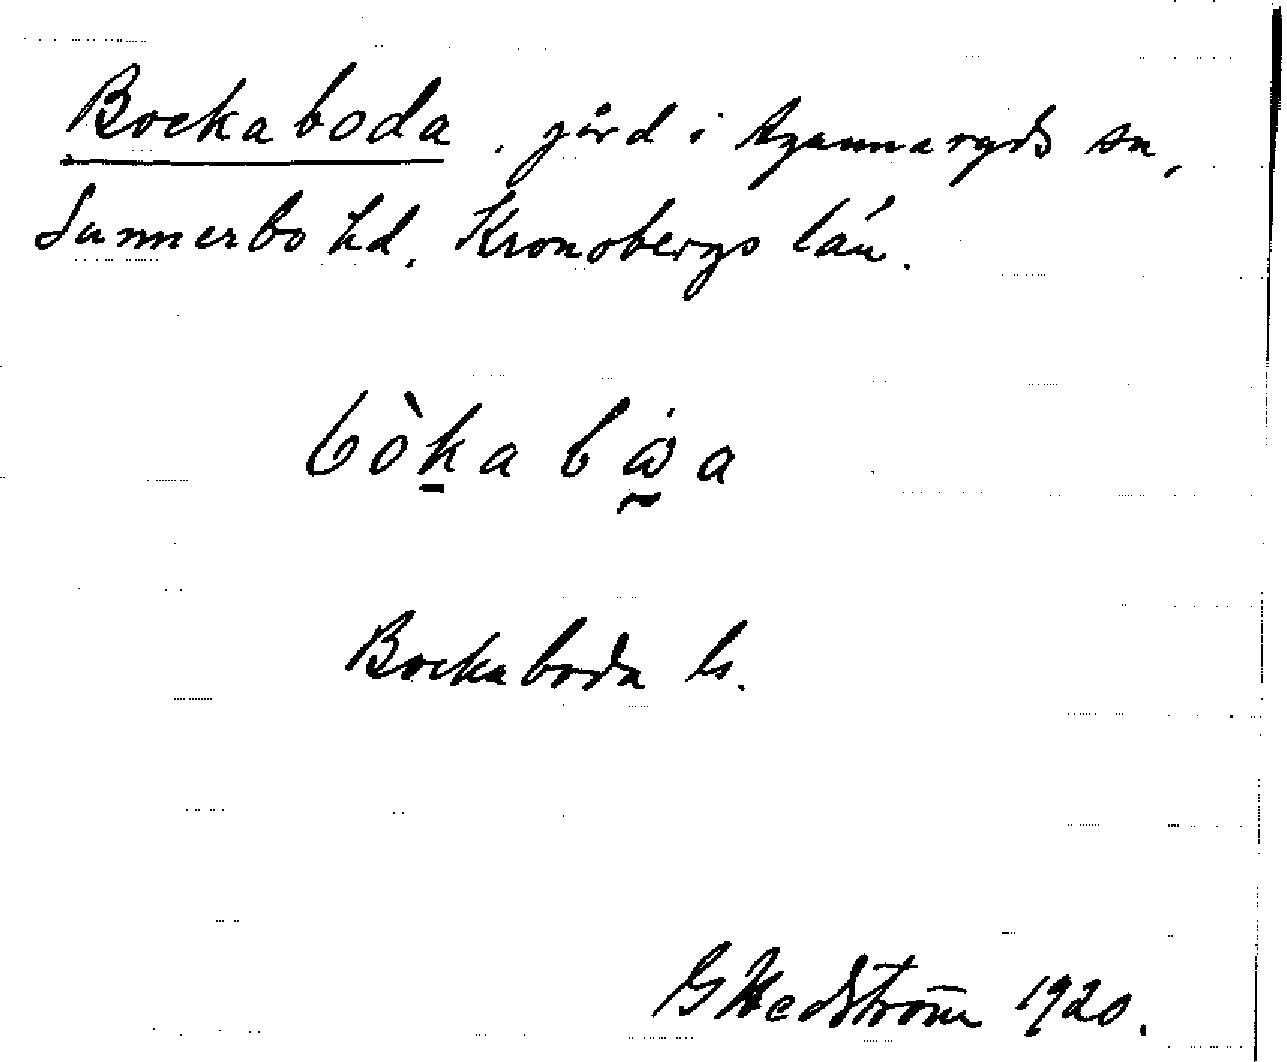 Bockaboda, gård i Agunnaryds sn,
Sunnerbo hd, Kronobergs län.
bòka båa
Bockaboda ls.
G Hedström 1920.